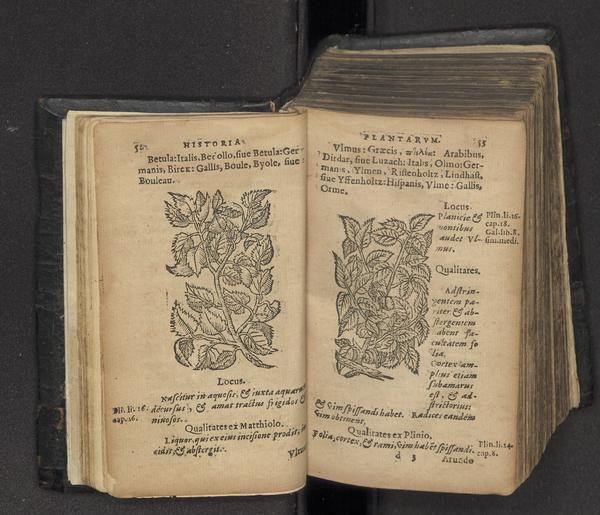 HISTORIA
Betula: Italis, Betollo, siue Betula: Ger-
manis, Birck: Gallis, Boule, Byole, siue
Bouleau.
Locus.
Nascitur in aquosis, & iuxta aquarum
Pli. li. 16. decursus, & amat tractus frigidos &
cap. 16. niuosos.
Qualitates ex Matthiolo.
Liquor, qui ex eius incisione prodit,
& abstergit.
PLANTARVM. 55
Vlmus: Græcis, πτελέα: Arabibus,
Dirdar, siue Luzach: Italis, Olmo: Ger-
manis, Ylmen, Ristenholtz, Lindhast,
siue Yffenholtz: Hispanis, Vlme: Gallis,
Orme.
Locus.
Planicie &
montibus
gaudet Vl-
mus.
Plin. li. 16.
cap. 18.
Gal. lib. 8.
sim. medi.
Qualitates.
Adstrin-
gentem pa-
riter & ab-
stergentem
habent fa-
cultatem fo
lia.
Cortex am-
plius etiam
subamarus
est, & ad-
strictorius:
& vim spissandi habet. Radices eandem
vim obtinent.
Qualitates ex Plinio.
Folia, cortex, & rami, vim habēt spissandi.
Plin. li. 24.
cap. 8.
d 3 Arundo